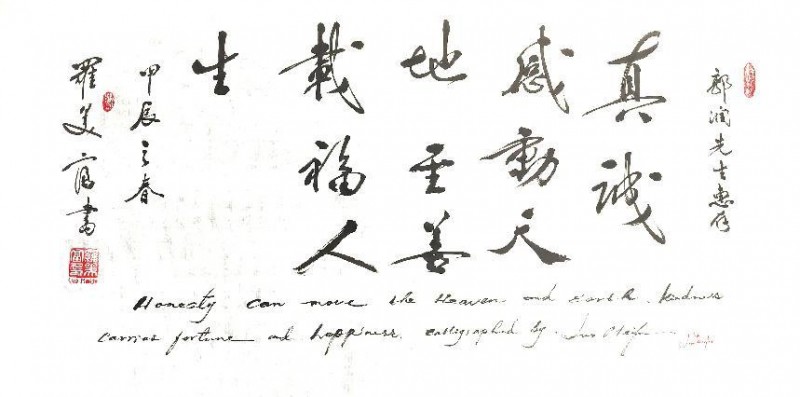 郭润先生惠存
真誠
感動天
地至善
載福人
生
甲辰之春
羅美富書
Honesty can move the Heaven and Earth. Kindness
carries fortune and happiness. Calligraphed by Luo Meifu